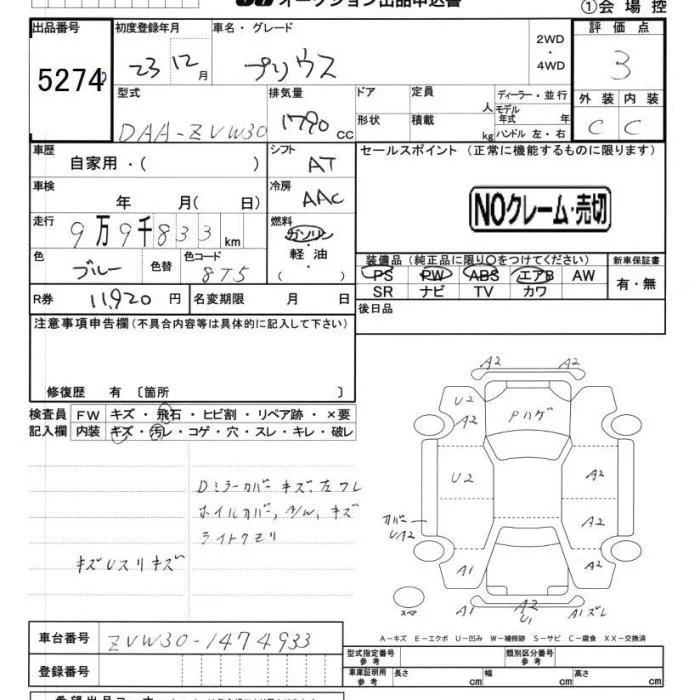 オークション出品申込書
①会場控
出品番号 初度登録年月 車名・グレード 2WD・4WD 評価点
5274 23 12月 プリウス 3
型式 排気量 ドア 定員 人 ディーラー・並行 外装 内装
DAA-ZVW30 1790 CC 形状 積載 kg モデル年式 年 ハンドル 左・右 C C
車歴 シフト セールスポイント (正常に機能するものに限ります)
自家用・( ) AT
車検 冷房
年 月( 日) AAC NOクレーム・売切
走行 燃料
9万9千833km ガソリン・軽油・( )
色 色替 色コード 装備品 (純正品に限り○をつけてください) 新車保証書
ブルー 8T5 PS PW ABS エアB AW 有・無
SR ナビ TV カワ
R券 11,920円 名変期限 月 日 後日品
注意事項申告欄(不具合内容等は具体的に記入して下さい)
修復歴 有 〔箇所 〕
検査員 FW キズ・飛石・ヒビ割・リペア跡・×要
記入欄 内装 キズ・汚レ・コゲ・穴・スレ・キレ・破レ
A2 A2
U2 Pハゲ A2
U2 A2
A2
カバー UA2
A1 A1
スペア A1 A2 U1 A1ズレ
Dミラーカバーキズ、左フレ
ホイルカバー、A/W、キズ
ライトクモリ
キズUスリキズ
A-キズ E-エクボ U-凹み W-補修跡 S-サビ C-腐食 XX-交換済
車台番号 ZVW30-1474933
型式指定番号 参考 類別区分番号 参考
登録番号 車庫証明用 参考 長さ cm 幅 cm 高さ cm
希望出品コーナー